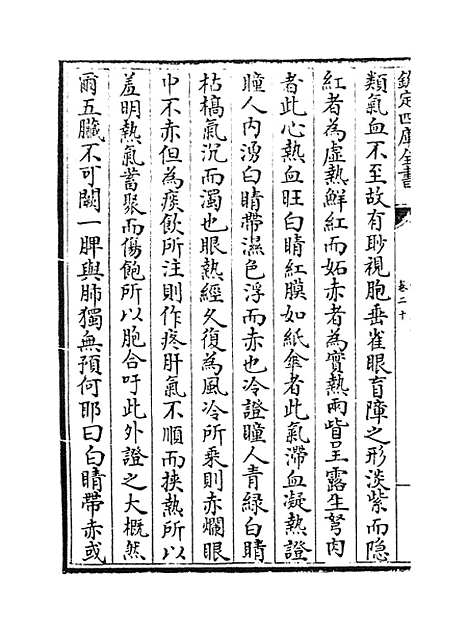 欽定四庫全書
卷二十
類氣血不至故有眇視胞垂雀眼盲障之形淡紫而隱
紅者為虛熱鮮紅而妬赤者為實熱兩眥呈露生弩肉
者此心熱血旺白睛紅膜如紙傘者此氣滯血凝熱證
瞳人內湧白睛帶濕色浮而赤也冷證瞳人青綠白睛
枯槁氣沉而濁也眼熱經久復為風冷所乘則赤爛眼
中不赤但為痰飲所注則作疼肝氣不順而挾熱所以
羞明熱氣蓄聚而傷飽所以胞合吁此外證之大概然
爾五臟不可闕一脾與肺獨無預何耶曰白睛帶赤或